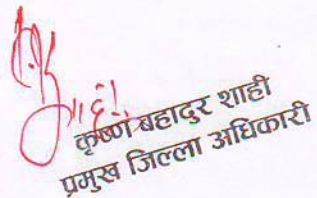 कृष्ण बहादुर शाही
प्रमुख जिल्ला अधिकारी